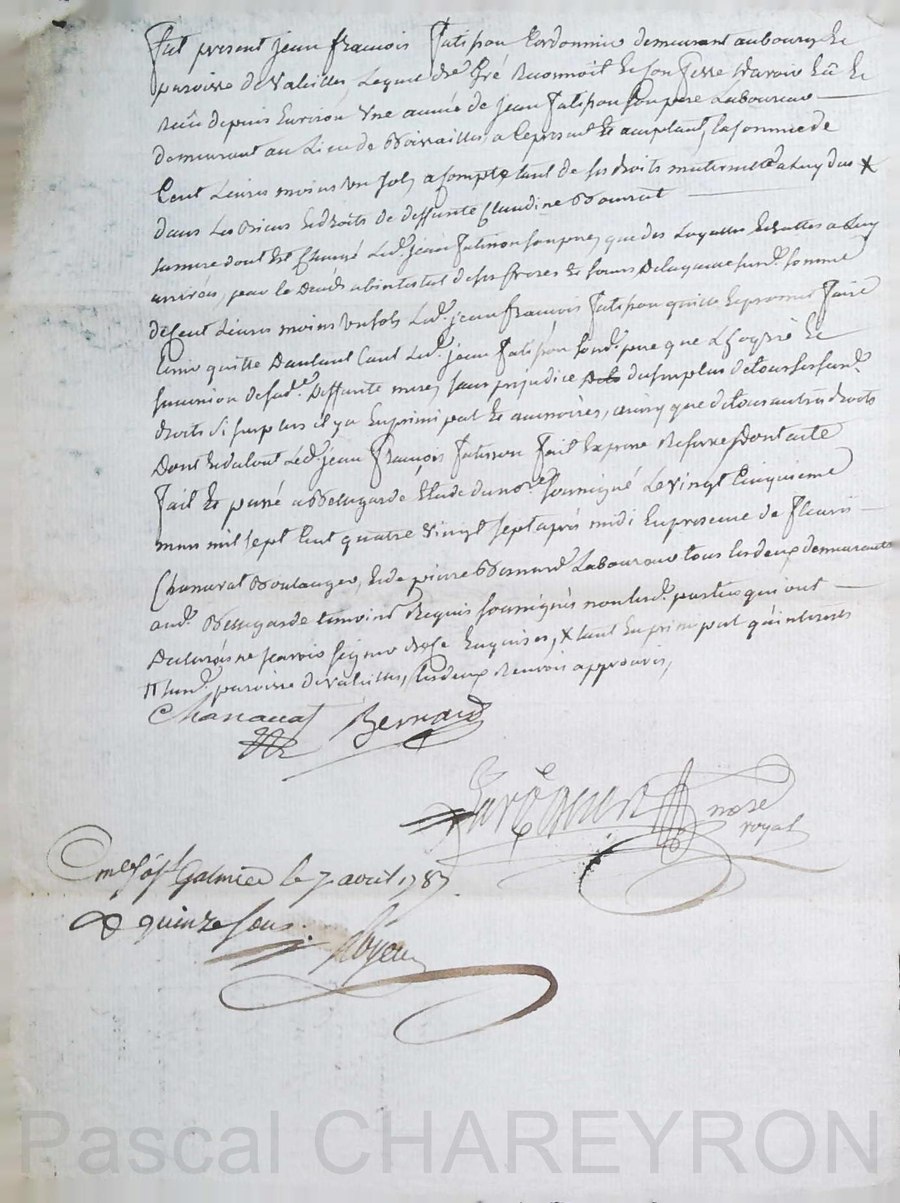 Fut present jean francois Fatisson Cordonnier demeurant au bourg et
paroisse de Valeilles, Lequel de gré Reconnoit et confesse d'avoir Eü et
Receu depuis Environ Une année de jean Fatisson son pere Laboureur
demeurant au Lieu de a Cepresent et acceptant la somme de
Cent Livres moins un sols, a Compte tant de ses droits maternelle a Luy dus X
dans Les Biens et droits de deffunte Claudine
sa mere dont Est Chargé Led. jean Fatisson son pere, que des Legattes a Luy
arrivés, par le Deces abintestat de ses freres et soeurs De laquelle susd. somme
de Cent Livres moins un sols Led. jean francois Fatisson quitte Et promet Faire
tenir quitte Dautant tant Led. jean Fatisson sond. pere que L'hoyrie et
succession de sad. Deffunte mere, sans prejudice du surplus de tous ses susd.
droits si surplus il y a En principal et accessoires, ainsy que de tous autres droits
Dont et du tout Led. jean François Fatisson Fait Expresse Reserve Dont acte
Fait et passé a Bellegarde Etude du nore. soussigné Le vingt Cinquieme
mars mil sept Cent quatre vingt sept après midi En presence de Fleuris
Chanavat Boulanger, et de pierre Bernard Laboureur tous Les deux demeurants
aud. Bellegarde temoins Requis soussignés non Lesd. parties qui ont
Declarés ne scavoir signer de ce Enquises, X tant En principal qu'interests
π susd. paroisse de Valeilles, Les deux Renvois approuvés,
Chanavat Bernard
nore
royal
Cmlé à St Galmier le 7 avril 1787
R quinze sous.
Pascal CHAREYRON